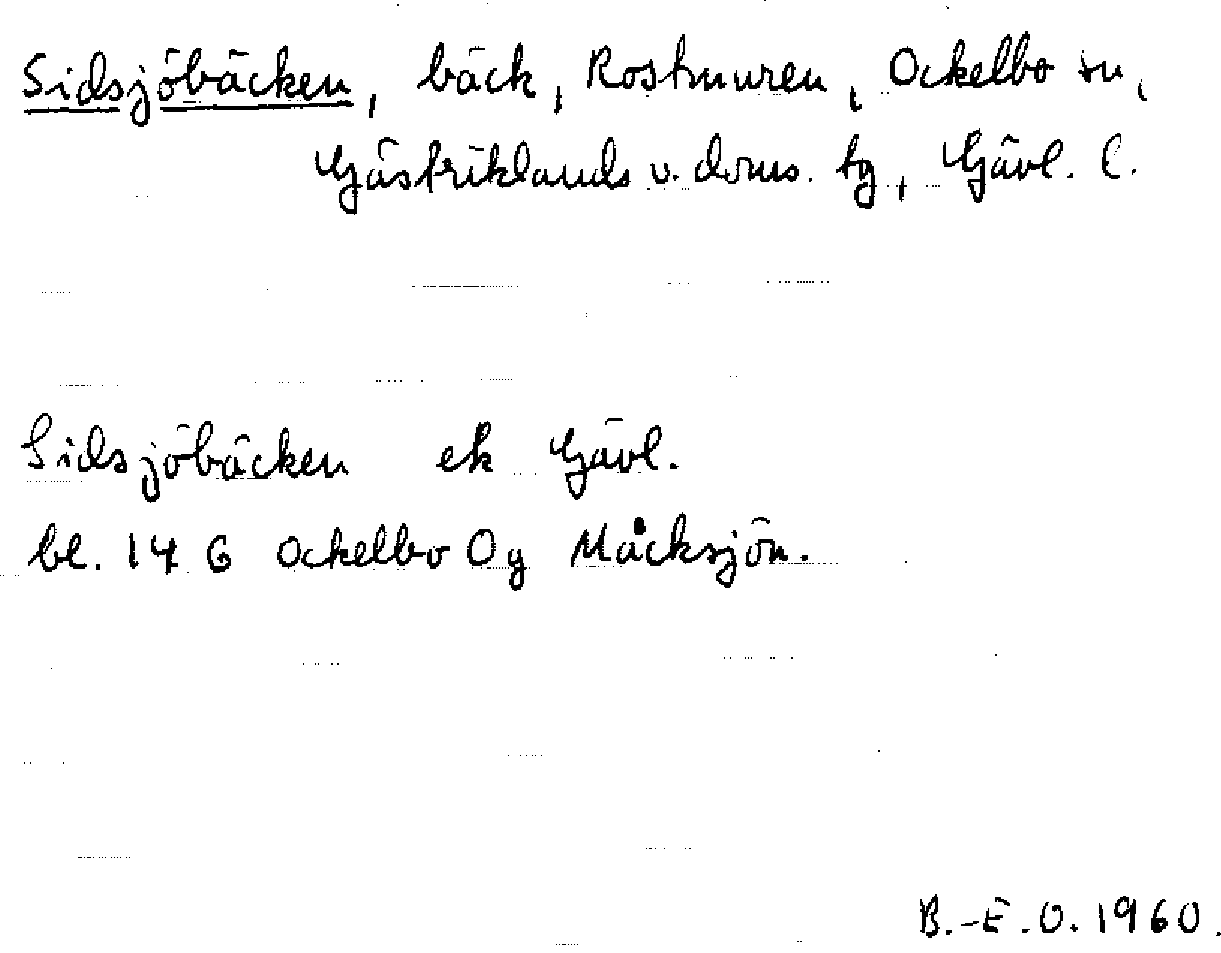 Sidsjöbäcken, bäck, Rostmuren, Ockelbo sn,
Gästriklands v. doms. tg, Gävl. l.
Sidsjöbäcken ek Gävl.
bl. 14 G Ockelbo 0g Måcksjön.
B.-E.O. 1960.